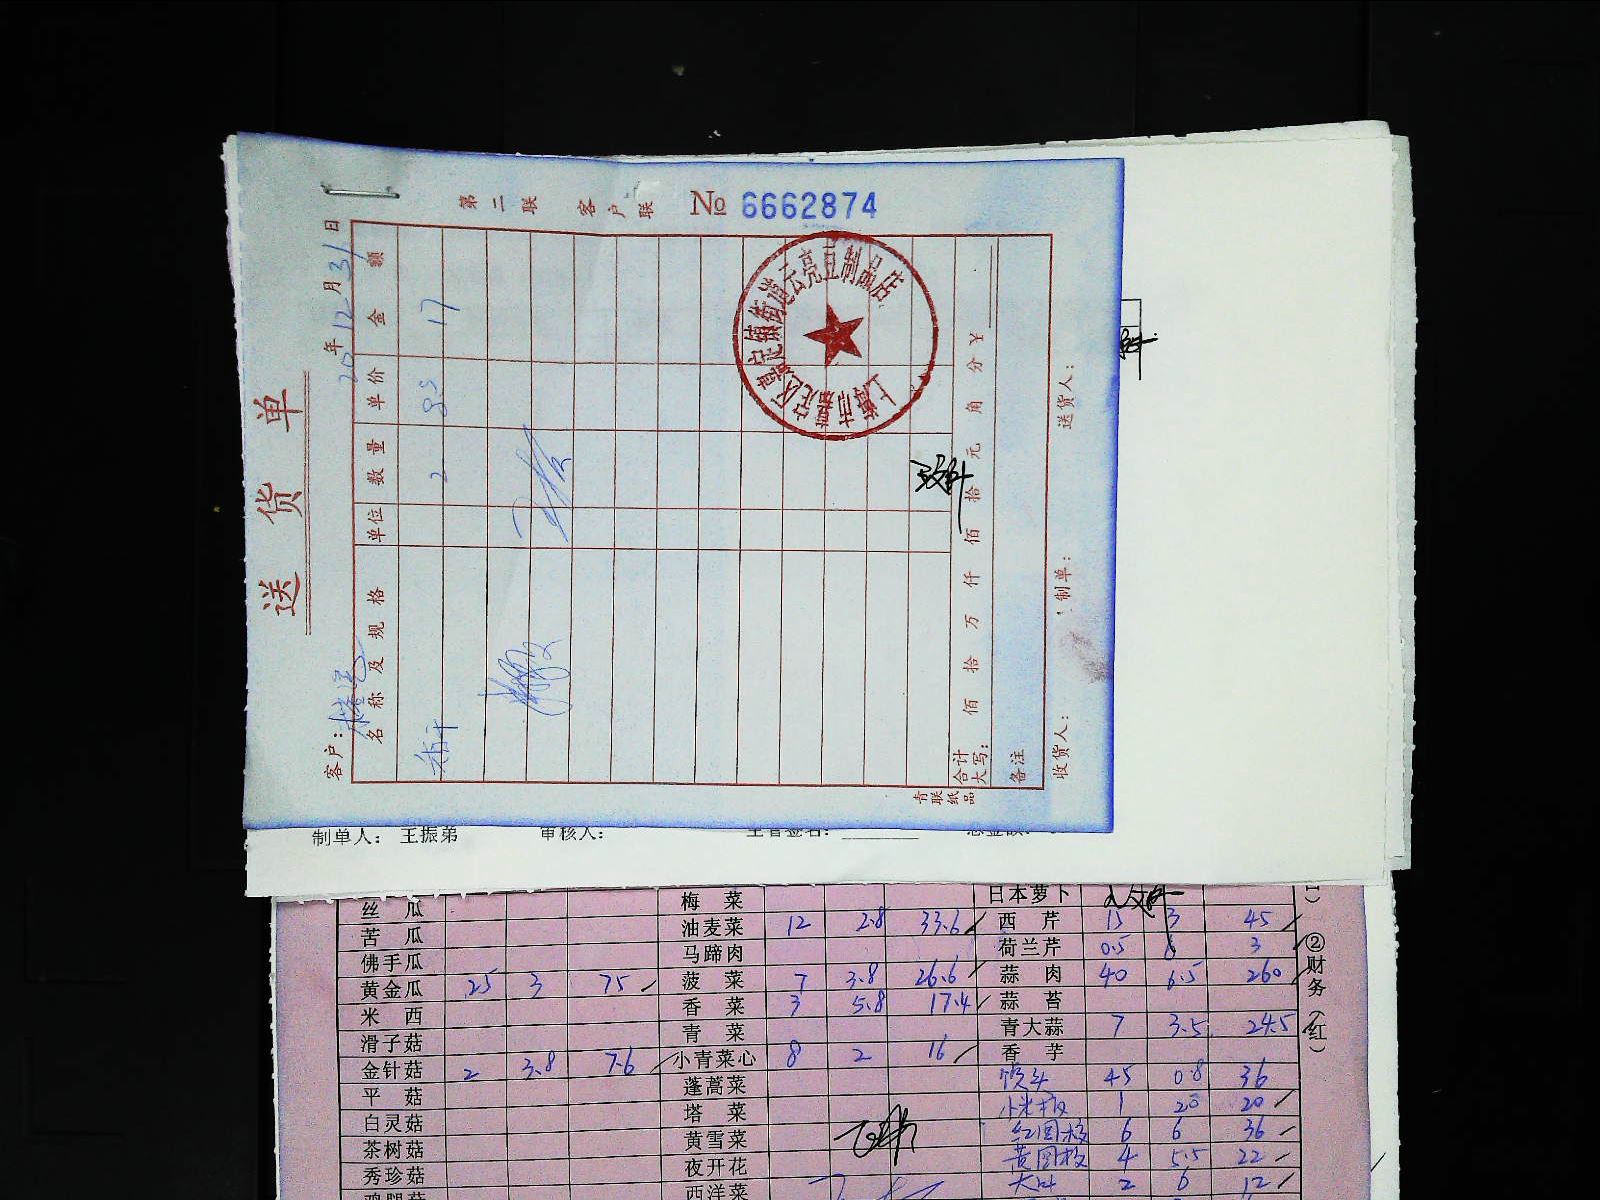 送货单
第二联 客户联 № 6662874
客户:
20年12月31日
名称及规格 单位 数量 单价 金额
香干 2 85 17
上海市嘉定区嘉定镇街道云亮豆制品店
合计大写: 佰 拾 万 仟 佰 拾 元 角 分 ¥
备注
收货人: 制单: 送货人:
青联纸品
制单人: 王振弟 审核人: 主管签名: 总金额:
丝瓜 梅菜 日本萝卜
苦瓜 油麦菜 12 2.8 33.6 西芹 15 3 45
佛手瓜 马蹄肉 荷兰芹 0.5 6 3
黄金瓜 25 3 75 菠菜 7 3.8 26.6 蒜肉 40 6.5 260
米西 香菜 3 5.8 17.4 蒜苔
滑子菇 青菜 青大蒜 7 3.5 24.5
金针菇 2 3.8 7.6 小青菜心 8 2 16 香芋
平菇 蓬蒿菜 馒头 45 0.8 36
白灵菇 塔菜 小米椒 1 20 20
茶树菇 黄雪菜 红圆椒 6 6 36
秀珍菇 夜开花 黄圆椒 4 5.5 22
鸡腿菇 西洋菜 大叶 2 6 12
②财务(红)